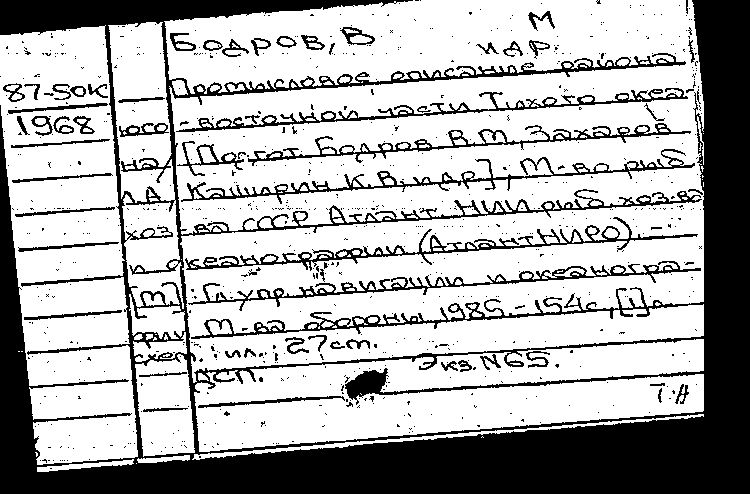 М
Бодров, В и др.
87-50К Промысловое описание района
1968 юго-восточной части Тихого океа-
на / [Подгот. Бодров В.М., Захаров
Л.А, Каширин К.В, и др.]; М-во рыб
хоз-ва СССР, Атлант. НИИ рыб. хоз-ва
и океанографии (АтлантНИРО). -
[М.] : Гл. упр. навигации и океаногра-
фии М-ва обороны, 1985. - 154с., [1] л.
схем. : ил. ; 27 cm.
ДСП. Экз. N65.
Т.Н